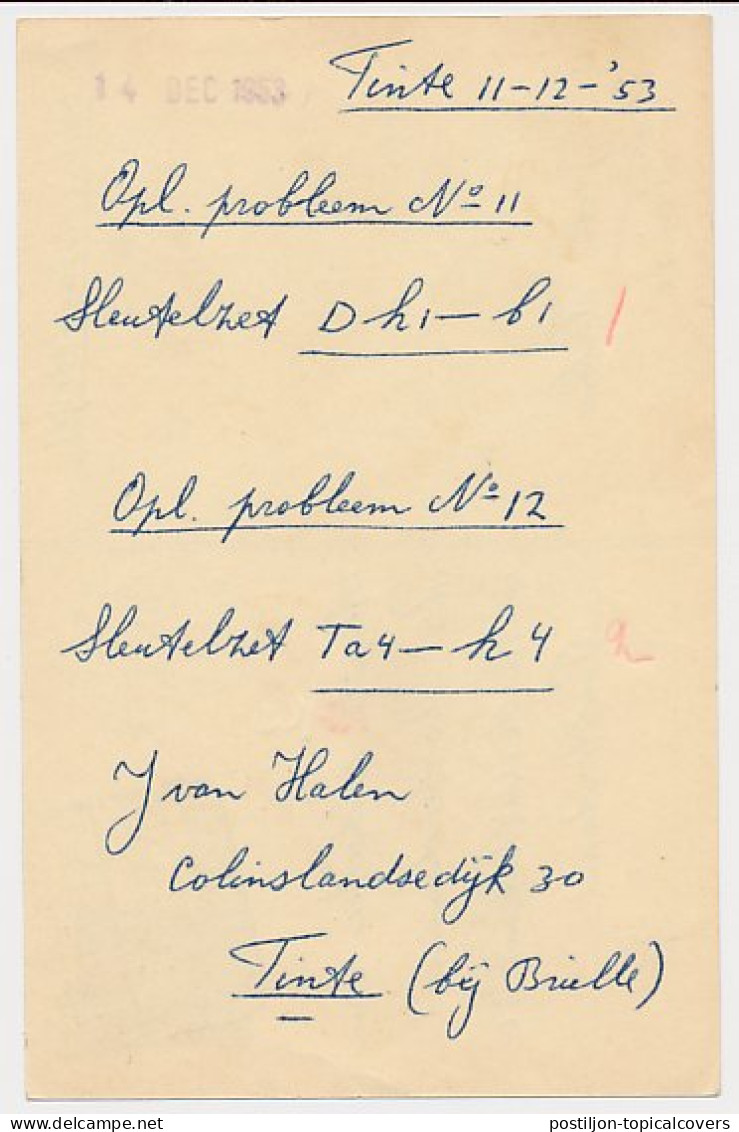 14 DEC 1953
Tinte 11-12-'53
Opl. probleem No 11
Sleutelzet Dh1-b1
Opl. probleem No 12
Sleutelzet Ta4-h4
J van Halen
Colinslandsedijk 30
Tinte (bij Brielle)
postiljon-topicalcovers